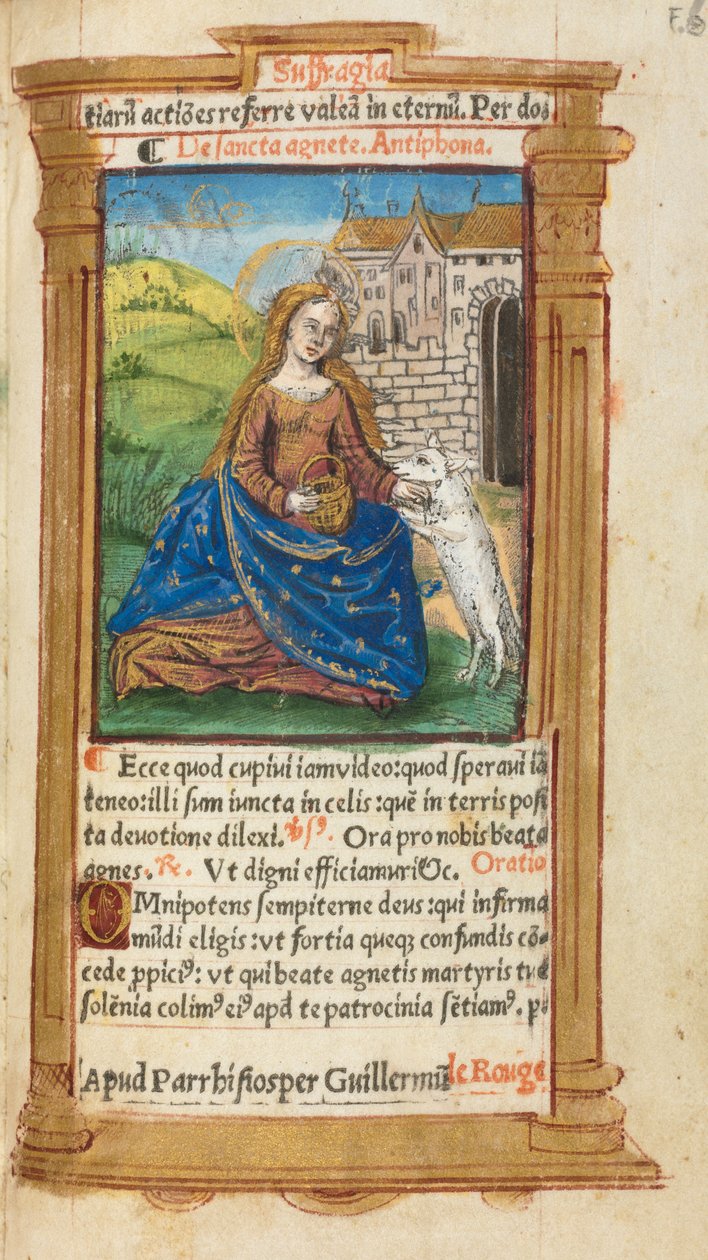 F.6
Suffragia
tiarū actiōes referre valeā in eternū. Per do:
De sancta agnete. Antiphona.
Ecce quod cupiui iam video: quod speraui iā
teneo: illi sum iuncta in celis: quē in terris posi
ta deuotione dilexi. v̄sꝰ. Ora pro nobis beata
agnes. R. Vt digni efficiamur &c. Oratio
OMnipotens sempiterne deus: qui infirma
mūdi eligis: vt fortia queqz confundis cō-
cede ꝓpiciꝰ: vt qui beate agnetis martyris tue
solēnia colimꝰ eiꝰ apd te patrocinia sētiamꝰ. p.
Apud Parrhisios per Guillermū le Rouge